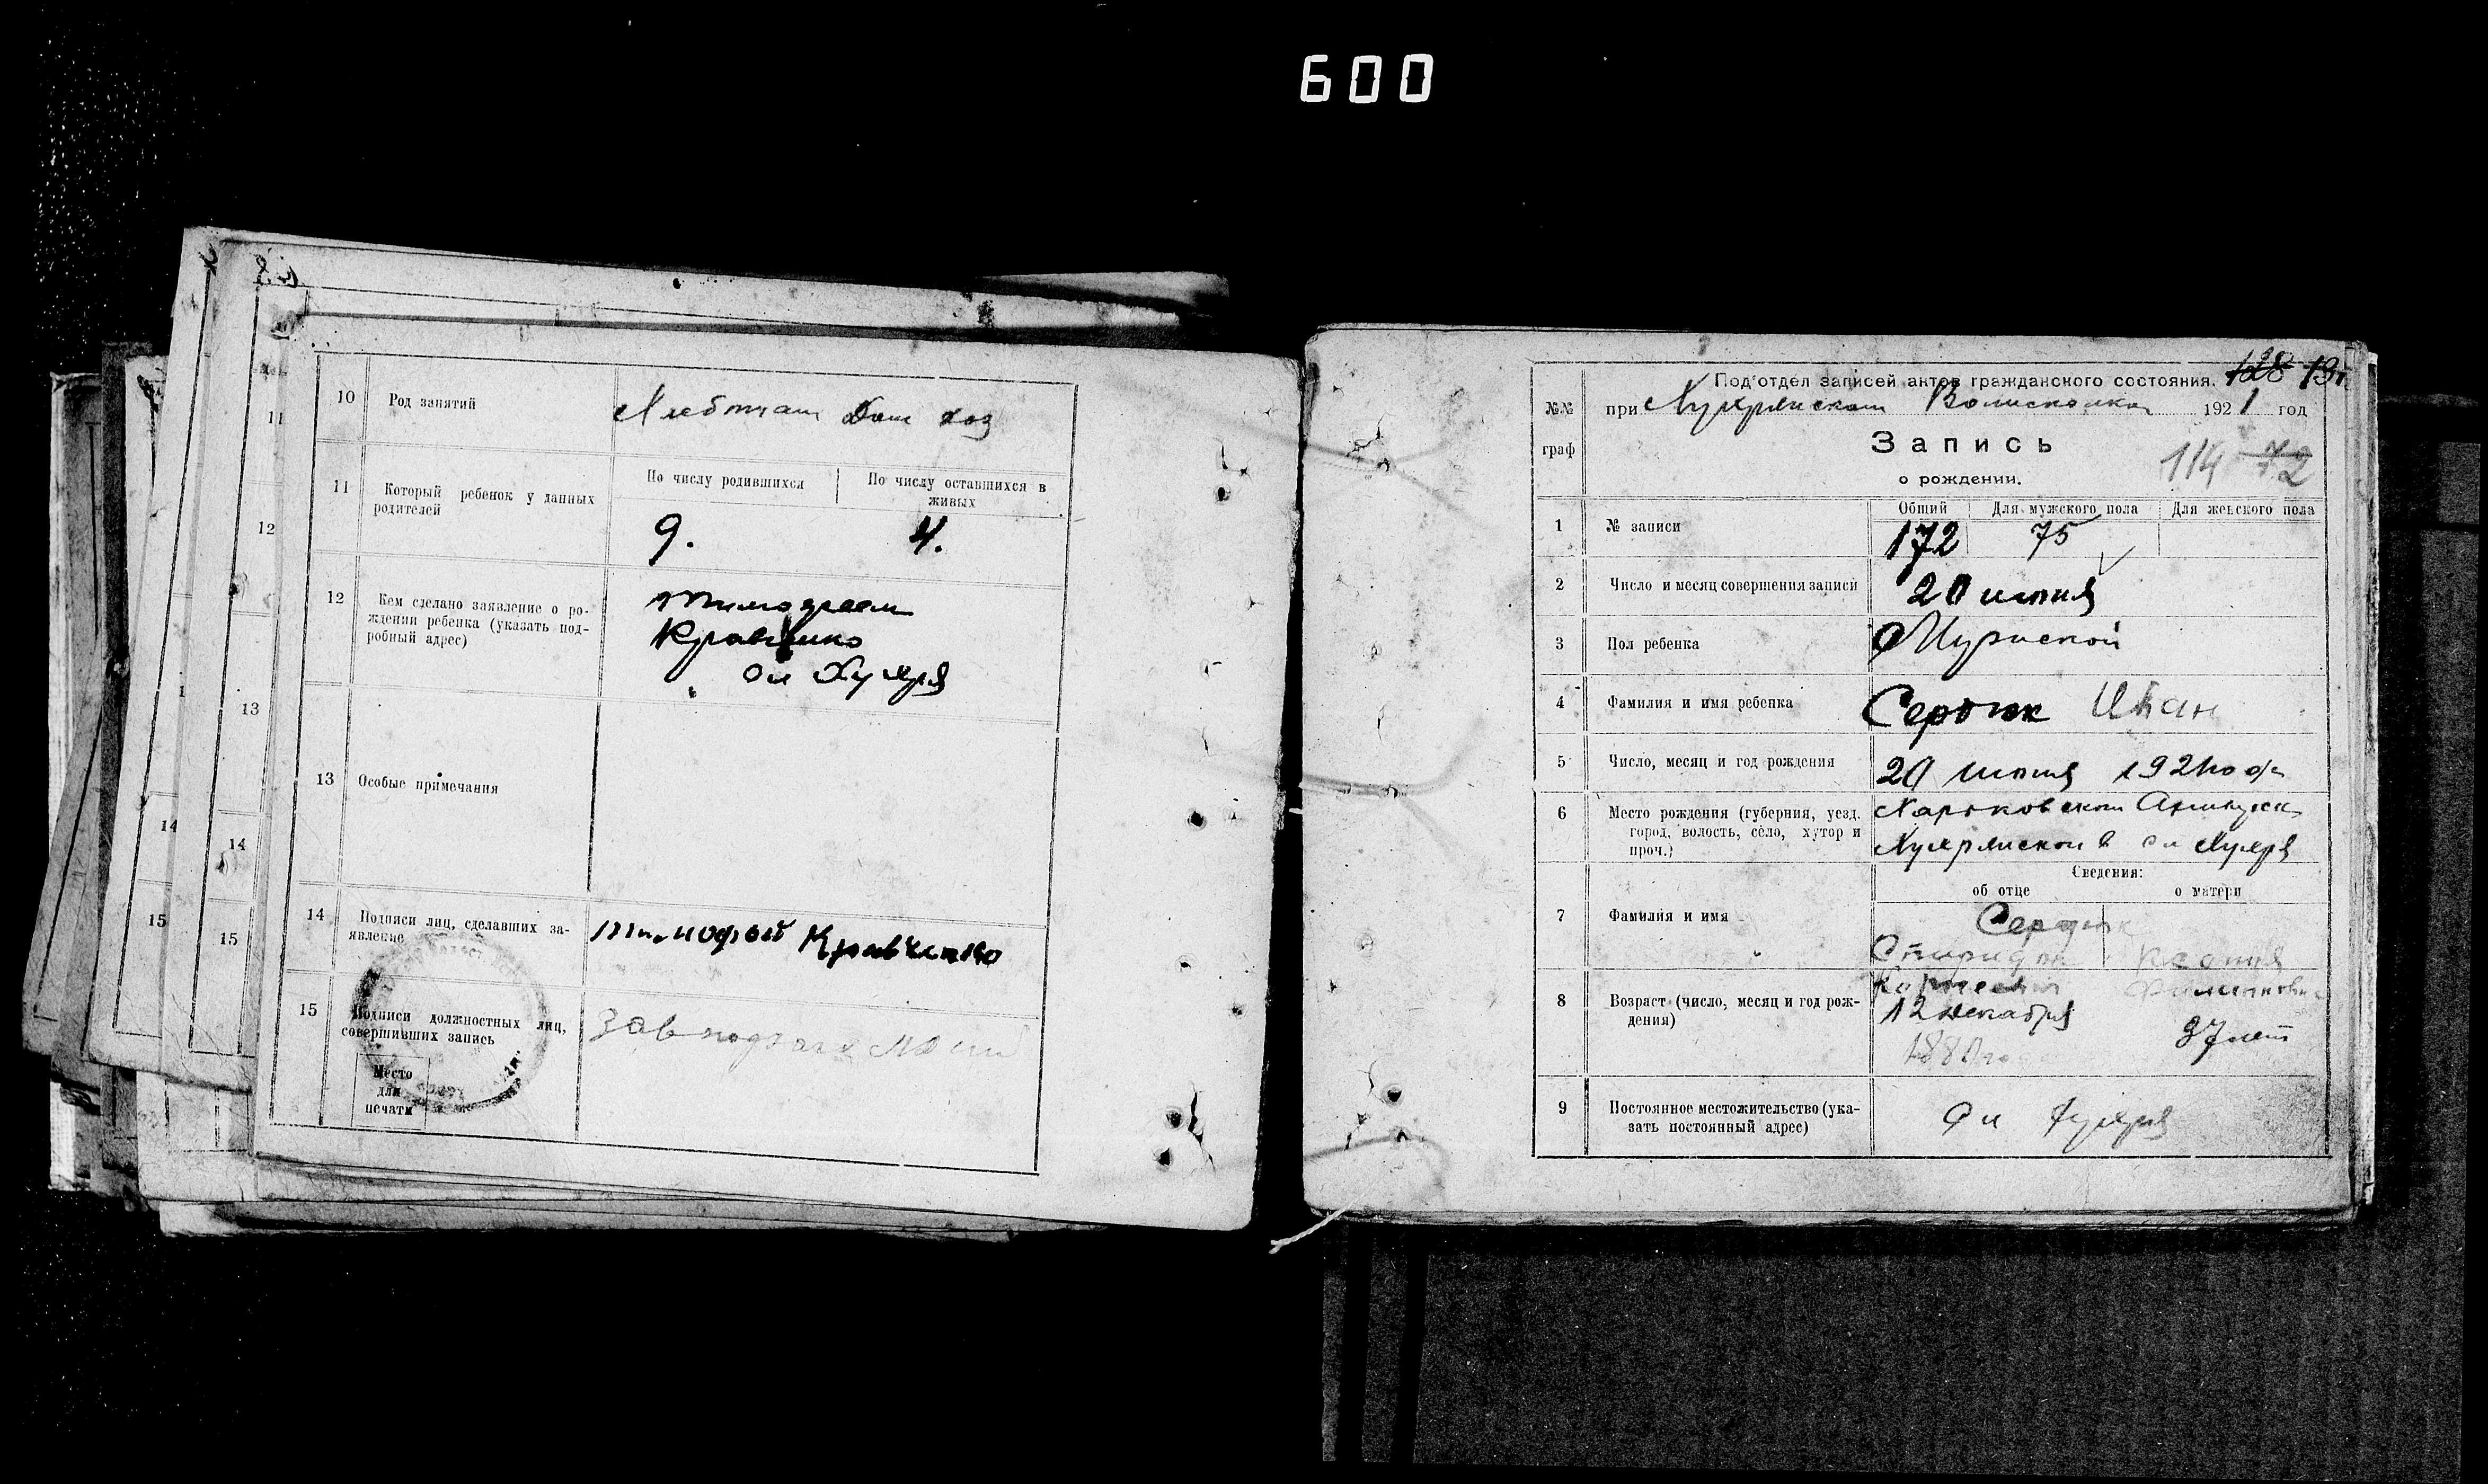 600
10 Род занятий
Хлебопаш Дом хоз
11 Который ребенок у данных родителей
По числу родившихся
По числу оставшихся в живых
9. 4.
12 Кем сделано заявление о ро-
ждении ребенка (указать под-
робный адрес)
Тимофеем
Кравченко
сл
13 Особые примечания
14 Подписи лиц, сделавших за-
явление
Тимофей Кравченко
15 Подписи должностных лиц,
совершивших запись
Место
для
печати
11
12
13
14
15
14
15
Под'отдел записей актов гражданского состояния.
128
№№
граф
при Волисполком 1921 год
Запись
о рождении.
114 72
1 № записи
Общий Для мужского пола Для женского пола
172 75
2 Число и месяц совершения записи
20 июня
3 Пол ребенка
Мужской
4 Фамилия и имя ребенка
Сердюк Иван
5 Число, месяц и год рождения
20 июня 1921 года
6 Место рождения (губерния, уезд,
город, волость, село, хутор и
проч.)
Харьковской
в сл
Сведения:
об отце о матери
7 Фамилия и имя
Сердюк
Спиридон Ксения
8 Возраст (число, месяц и год рож-
дения)
12 декабря 37 лет
188 года
9 Постоянное местожительство (ука-
зать постоянный адрес)
сл